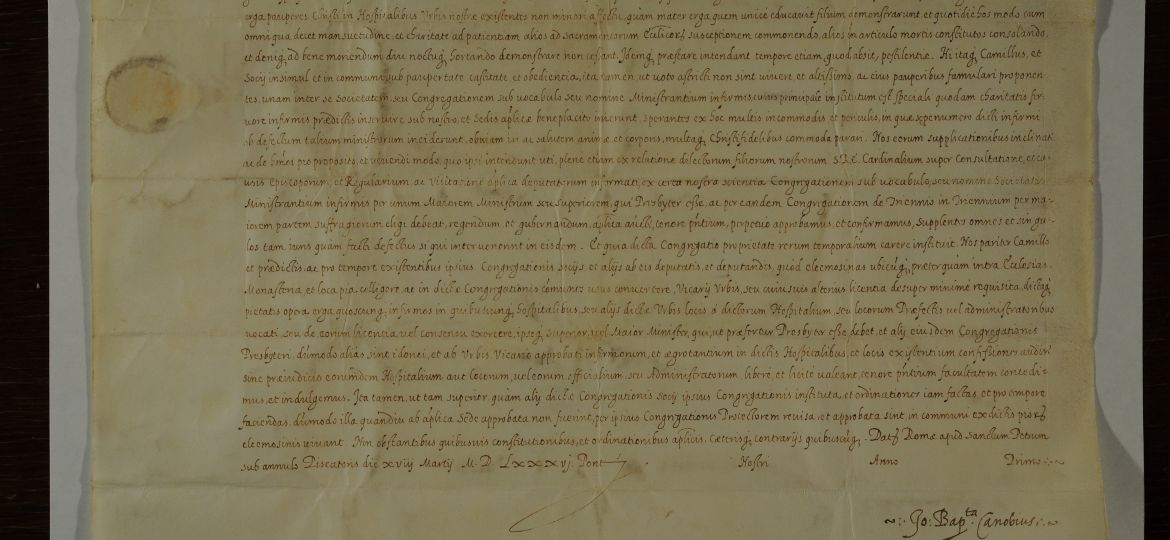 erga pauperes Christi in Hospitalibus Urbis nostræ existentes non minori affectu, quàm mater erga quem unicè educavit filium demonstrarunt, et quotidie hos modo cum
omni qua decet mansuetudine, et charitate ad patientiam alios ad Sacramentorum susceptionem commonendo, alios in articulo mortis constitutos consolando,
et deniq, ad bene moriendum diu noctuq, hortando demonstrare non cessant. Idemq, præstare intendant tempore etiam, quod absit, pestilentiæ. Hi itaq, Camillus, et
Socij insimul et in communi sub paupertate, castitate et obedientia, ita tamen, ut voto astricti non sint vivere, et altissimo, ac eius pauperibus famulari proponen-
tes, unam inter se Societatem, seu Congregationem sub vocabulo seu nomine Ministrantium infirmis, cuius principale institutum est speciali quodam charitatis fer-
vore infirmis prædictis inservire sub nostro, et Sedis aplicæ beneplacito inierunt, sperantes ex hoc multis incommodis et periculis, in quæ sæpenumero dicti infirmi
ob defectum talium ministrorum inciderunt, obviam iri ac saluti animæ et corporis, multaq, Christifidelibus commoda parari. Nos eorum supplicationibus inclinati
ac de pio proposito, et vivendi modo, quo ipsi intendunt uti, plenè etiam ex relatione dilectorum filiorum nostrorum S.R.E. Cardinalium super Consultatione, et
Episcoporum, et Regularium ac Visitatione aplica deputatorum informati, ex certa nostra scientia Congregationem sub vocabulo, seu nomine Societatis
Ministrantium infirmis per unum Maiorem Ministrum seu superiorem, qui Presbyter esse, ac per eandem Congregationem de Triennio in Triennium per ma-
iorem partem suffragiorum eligi debeat, regendum, et gubernandum, aplica aucte, tenore pntium, perpetuo approbamus, et confirmamus, supplentes omnes et singu-
los tam iuris quàm facti defectus si qui intervenerint in eisdem. Et quia dicta Congregatio proprietate rerum temporalium carere instituit, Nos pariter Camillo
et prædictis, ac pro tempore existentibus ipsius Congregationis Socijs, et alijs ab eis deputatis, et deputandis, quod eleemosinas ubicuq, præterquam intra Ecclesias,
Monasteria, et loca pia colligere, ac in dictæ Congregationis communes usus convertere, Vicarij Urbis, seu cuiusvis alterius licentia desuper minimè requisita, dictaq,
pietatis opera erga quoscunq, infirmos in quibuscunq, hospitalibus, seu alijs dictæ Urbis locis à dictorum Hospitalium, seu locorum Præfectis vel administratoribus
vocati, seu de eorum licentia, vel consensu exercere, ipseq, Superior, vel Maior Minister, qui, ut præfertur Presbyter esse debet, et alij eiusdem Congregationis
Presbyteri, dummodo aliàs sint idonei, et ab Urbis Vicario approbati infirmorum, et ægrotantium in dictis Hospitalibus, et locis existentium confessiones audire
sine præiudicio eorumdem Hospitalium aut locorum, vel eorum officialium, seu Administratorum, liberè, et licitè valeant, tenore pntium facultatem concedi-
mus, et indulgemus. Ita tamen, ut tam superior, quàm alij dictæ Congregationis Socij ipsius Congregationis instituta, et ordinationes iam factas, et pro tempore
faciendas, dummodo illa quandiu ab aplica Sede approbata non fuerint, per ipsius Congregationis Protectorem revisa, et approbata sint, in communi ex dictis
eleemosinis vivant. Non obstantibus quibusvis constitutionibus, et ordinationibus aplicis, Cæterisq, contrarijs quibuscuq,. Dat Romæ apud Sanctum Petrum
sub annulo Piscatoris die xviij Martij M. D. LXXXvj. Pont Nostri Anno Primo
Jo: Bapta Canobius